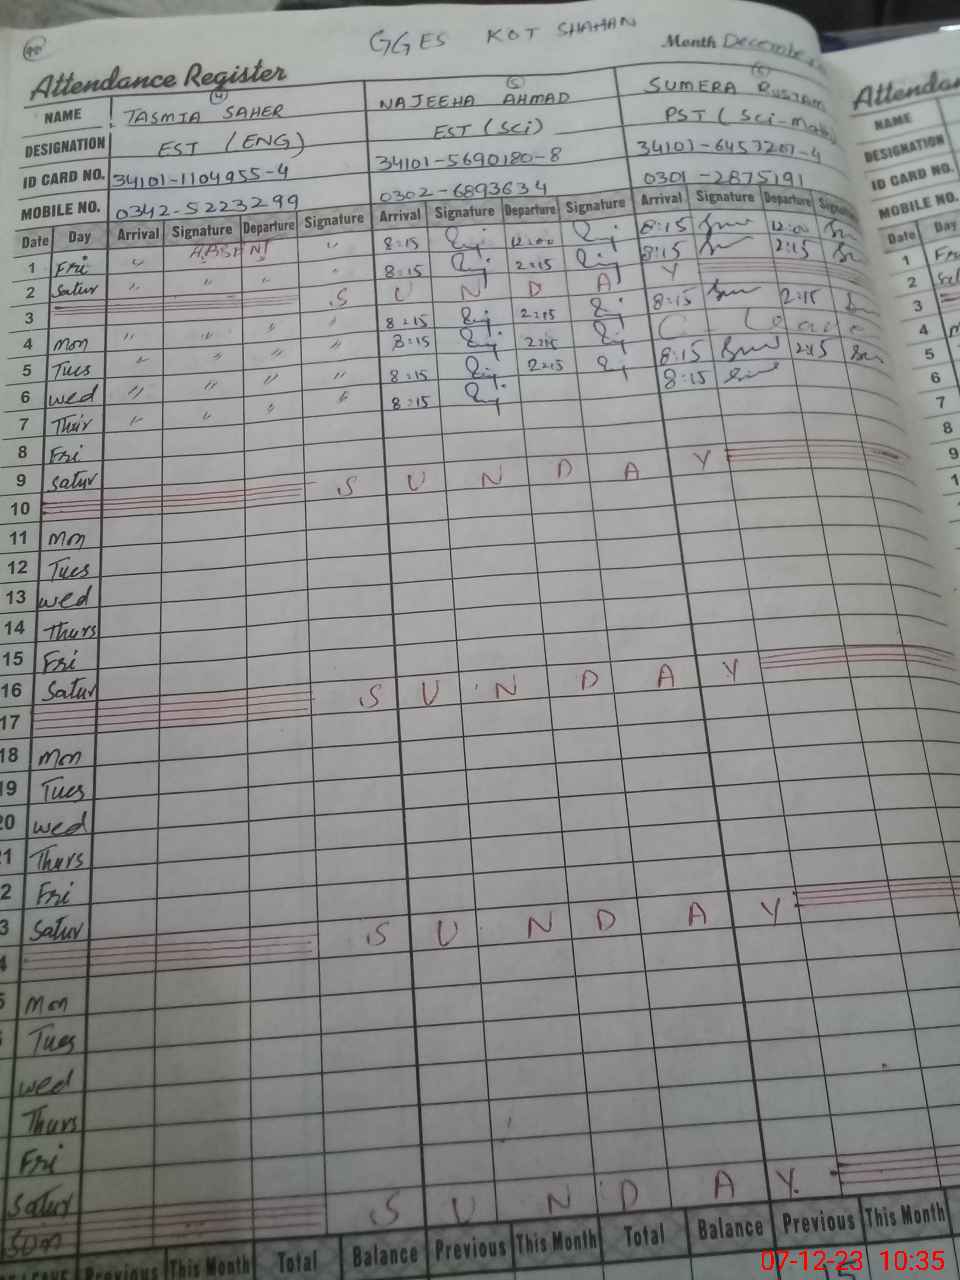 GGES KOT SHAHAN
Attendance Register Month December
NAME TASMIA SAHER (4) NAJEEHA AHMAD (5) SUMERA RUSTAM (6)
DESIGNATION EST (ENG) EST (Sci) PST (Sci-Math)
ID CARD NO. 34101-1104955-4 34101-5690180-8 34101-6457207-4
MOBILE NO. 0342-5223299 0302-6893634 0301-2875191
Date Day Arrival Signature Departure Signature Arrival Signature Departure Signature Arrival Signature Departure
1 Fri " ABSENT " 8:15 12:00 8:15 12:00
2 Satur " " " " 8:15 2:15 8:15 2:15
3 S U N D A Y
4 Mon " " " " 8:15 2:15 8:15 2:15
5 Tues " " " " 8:15 2:15 C - Leave
6 Wed " " " " 8:15 2:15 8:15 2:15
7 Thur " " " " 8:15 8:15
8 Fri
9 Satur
10 S U N D A Y
11 Mon
12 Tues
13 Wed
14 Thurs
15 Fri
16 Satur
17 S U N D A Y
18 Mon
19 Tues
20 Wed
1 Thurs
2 Fri
3 Satur
4 S U N D A Y
5 Mon
Tues
Wed
Thurs
Fri
Satur
Sun S U N D A Y
Previous This Month Total Balance Previous This Month Total Balance Previous This Month
Attenda
NAME
DESIGNATION
ID CARD NO.
MOBILE NO.
Date Day
1
2
3
4
5
6
7
8
9
07-12-23 10:35